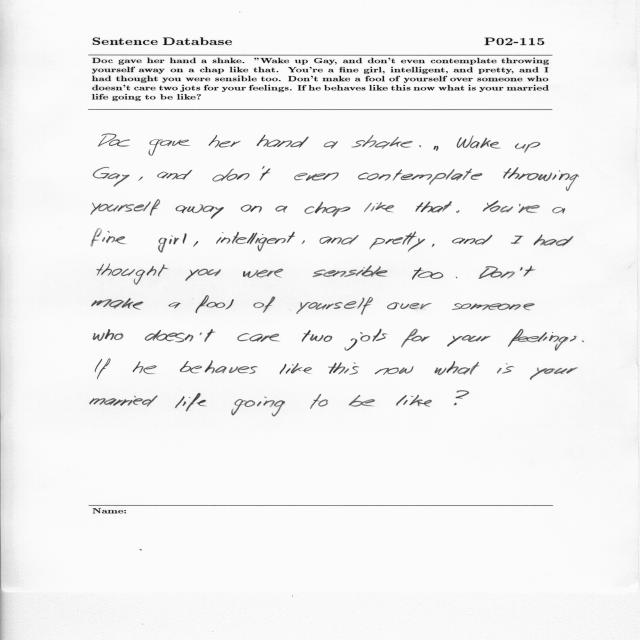 Sentence Database P02-115
Doc gave her hand a shake. "Wake up Gay, and don't even contemplate throwing
yourself away on a chap like that. You're a fine girl, intelligent, and pretty, and I
had thought you were sensible too. Don't make a fool of yourself over someone who
doesn't care two jots for your feelings. If he behaves like this now what is your married
life going to be like?
Doc gave her hand a shake. „ Wake up
Gay, and don't even contemplate throwing
yourself away on a chap like that. You're a
fine girl, intelligent, and pretty, and I had
thought you were sensible too. Don't
make a fool of yourself over someone
who doesn't care two jots for your feelings.
If he behaves like this now what is your
married life going to be like?
Name: